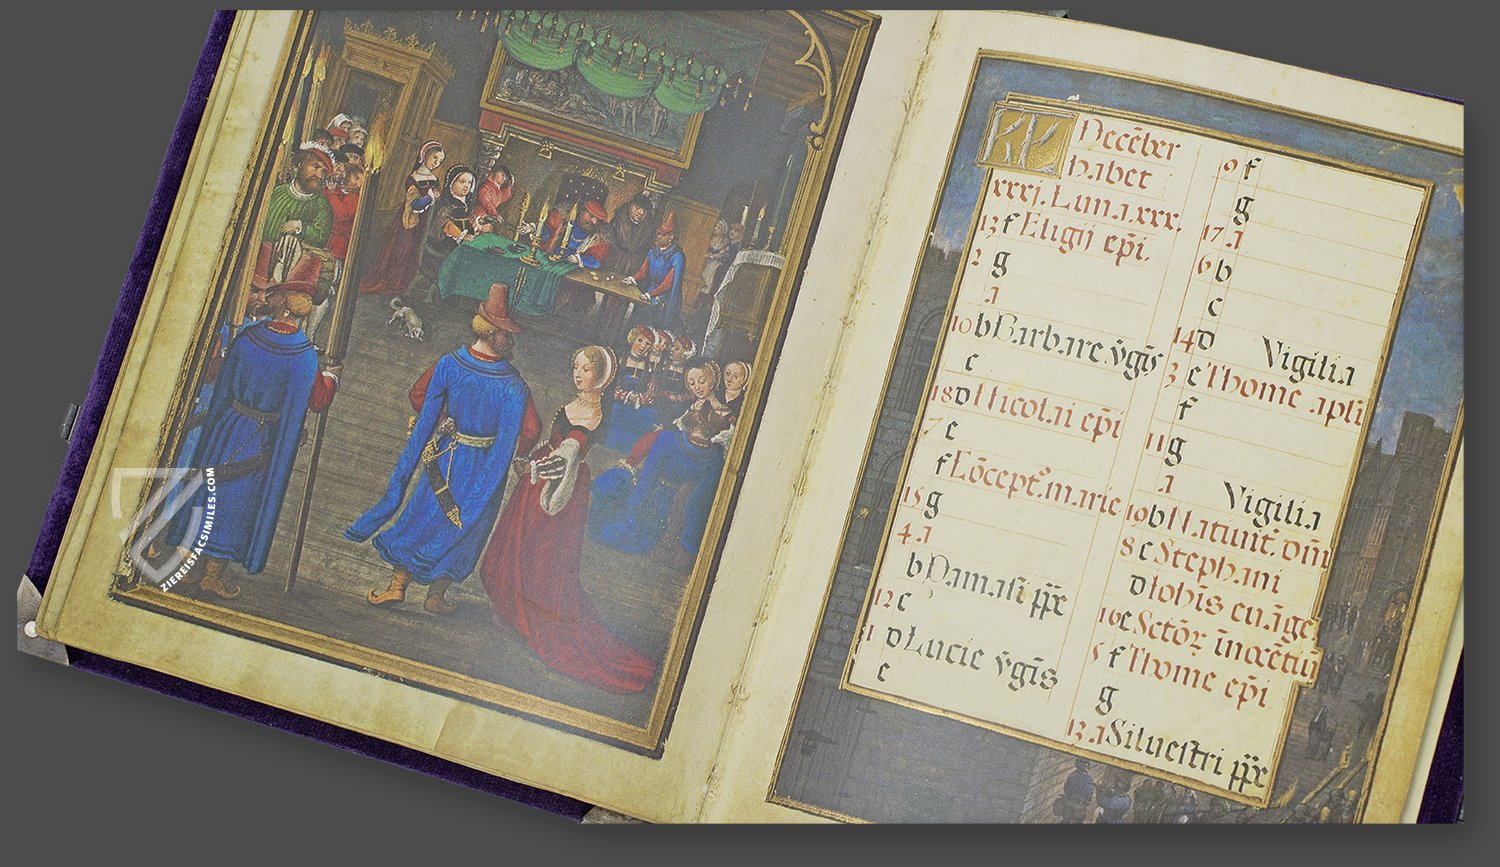 KL Decēber
habet
xxxj. Luna.xxx.
13 f Eligij ep̄i.
2 g
.a
10 b Barbare v̄gīs
c
18 d Nicolai ep̄i
7 e
f Cōcept.° marie
15 g
4 .a
b Damasi pp̄e
12 c
1 d Lucie v̄gīs
e
9 f
g
17 .a
6 b
c
14 d Vigilia
3 e Thome apl̄i
f
11 g
.a Vigilia
19 b Natiuit. dn̄i
8 c Stephani
d Iohīs euāge.
16 e Sctōꝝ īnocētuɱ
5 f Thome ep̄i
g
13 .a Siluestri pp̄e
ZIEREISFACSIMILES.COM